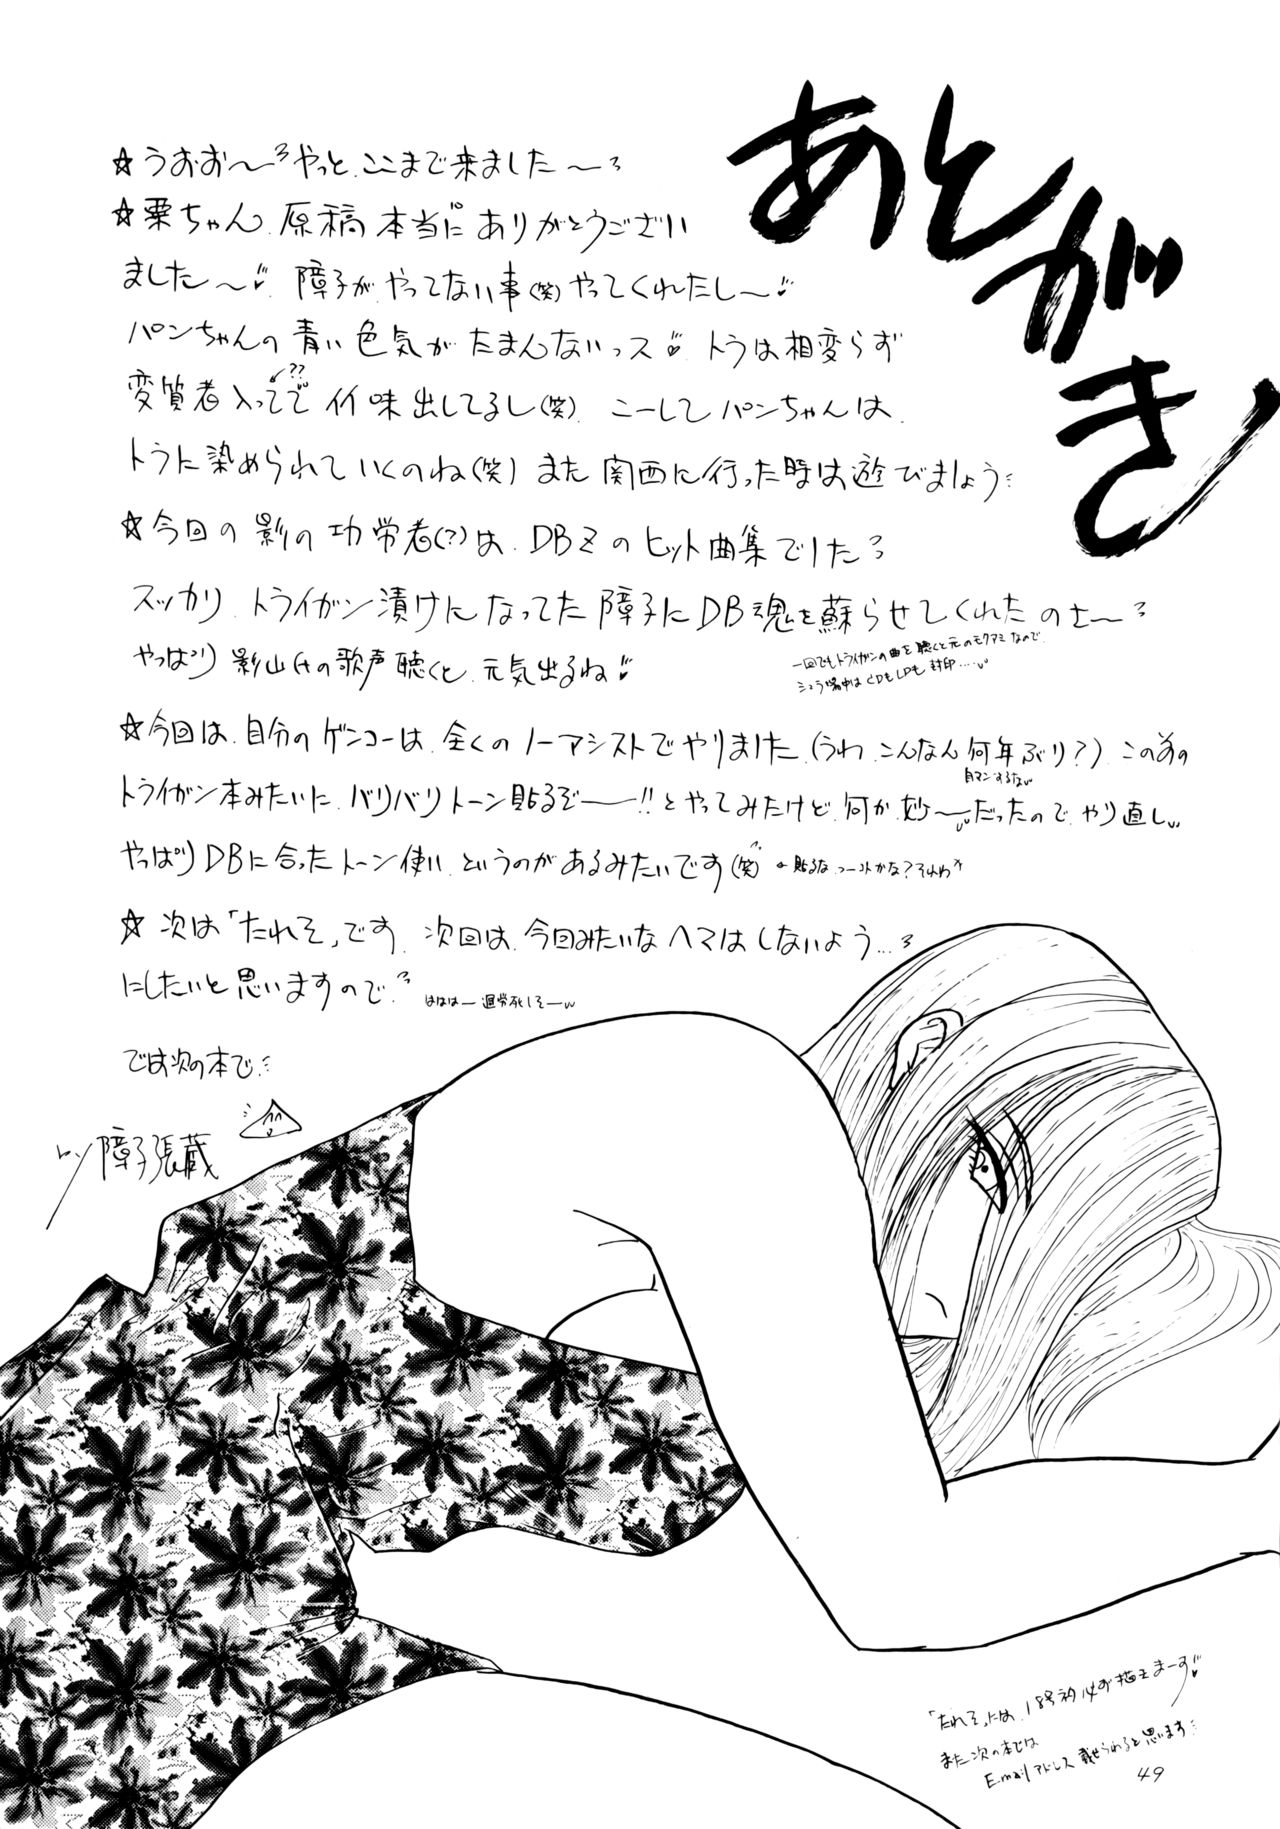 あとがき
☆うおお〜っやっと、ここまで来ました〜っ
☆栗ちゃん、原稿本当にありがとうござい
ました〜 障子がやってない事(笑)やってくれたし〜
パンちゃんの青い色気がたまんないっス トラは相変らず
変質者入ってて イイ味出してるし(笑) こーしてパンちゃんは、
??
トラに染められていくのね(笑) また関西に行った時は遊びましょう
☆今回の影の功労者(?)は、DBZのヒット曲集でしたっ
スッカリ、トライガン漬けになってた障子にDB魂を蘇らせてくれたのさ〜っ
やっぱり影山氏の歌声聴くと、元気出るね
一回でもトライガンの曲を聴くと元のモクアミなので、
シュラ場中はCDもLPも封印....
☆今回は、自分のゲンコーは、全くのノーアシストでやりました、(うわ、こんなん何年ぶり?) この前の
自マンするな
トライガン本みたいに、バリバリトーン貼るぞーー!!とやってみたけど、何か、妙〜だったので、やり直し
やっぱりDBに合ったトーン使い、というのがあるみたいです(笑) ←貼るな、つーコトかな?それわ
☆次は「たれそ」です、次回は、今回みたいなヘマはしないよう...っ
にしたいと思いますので、っ
ははは— 過労死しそー
では次の本で、
障子張蔵
「たれそ」には、18号初め描きまーす
また次の本では
E-mailアドレス載せられると思います
49